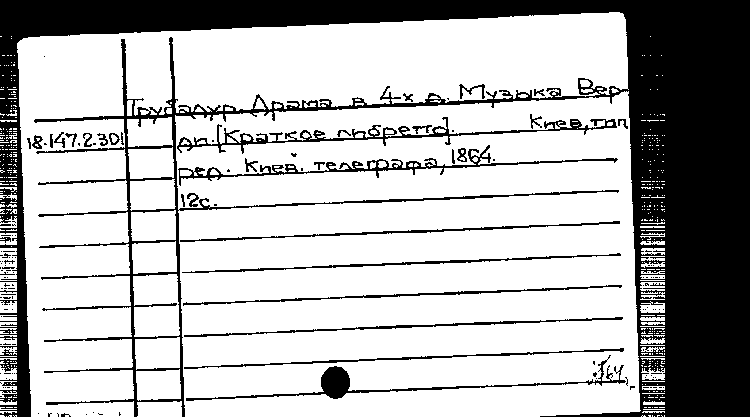 Трубадур. Драма в 4-х д. Музыка Вер-
18.147.2.301 ди. [Краткое либретто]. Киев, тип
ред. Киев. телеграфа, 1864.
12с.